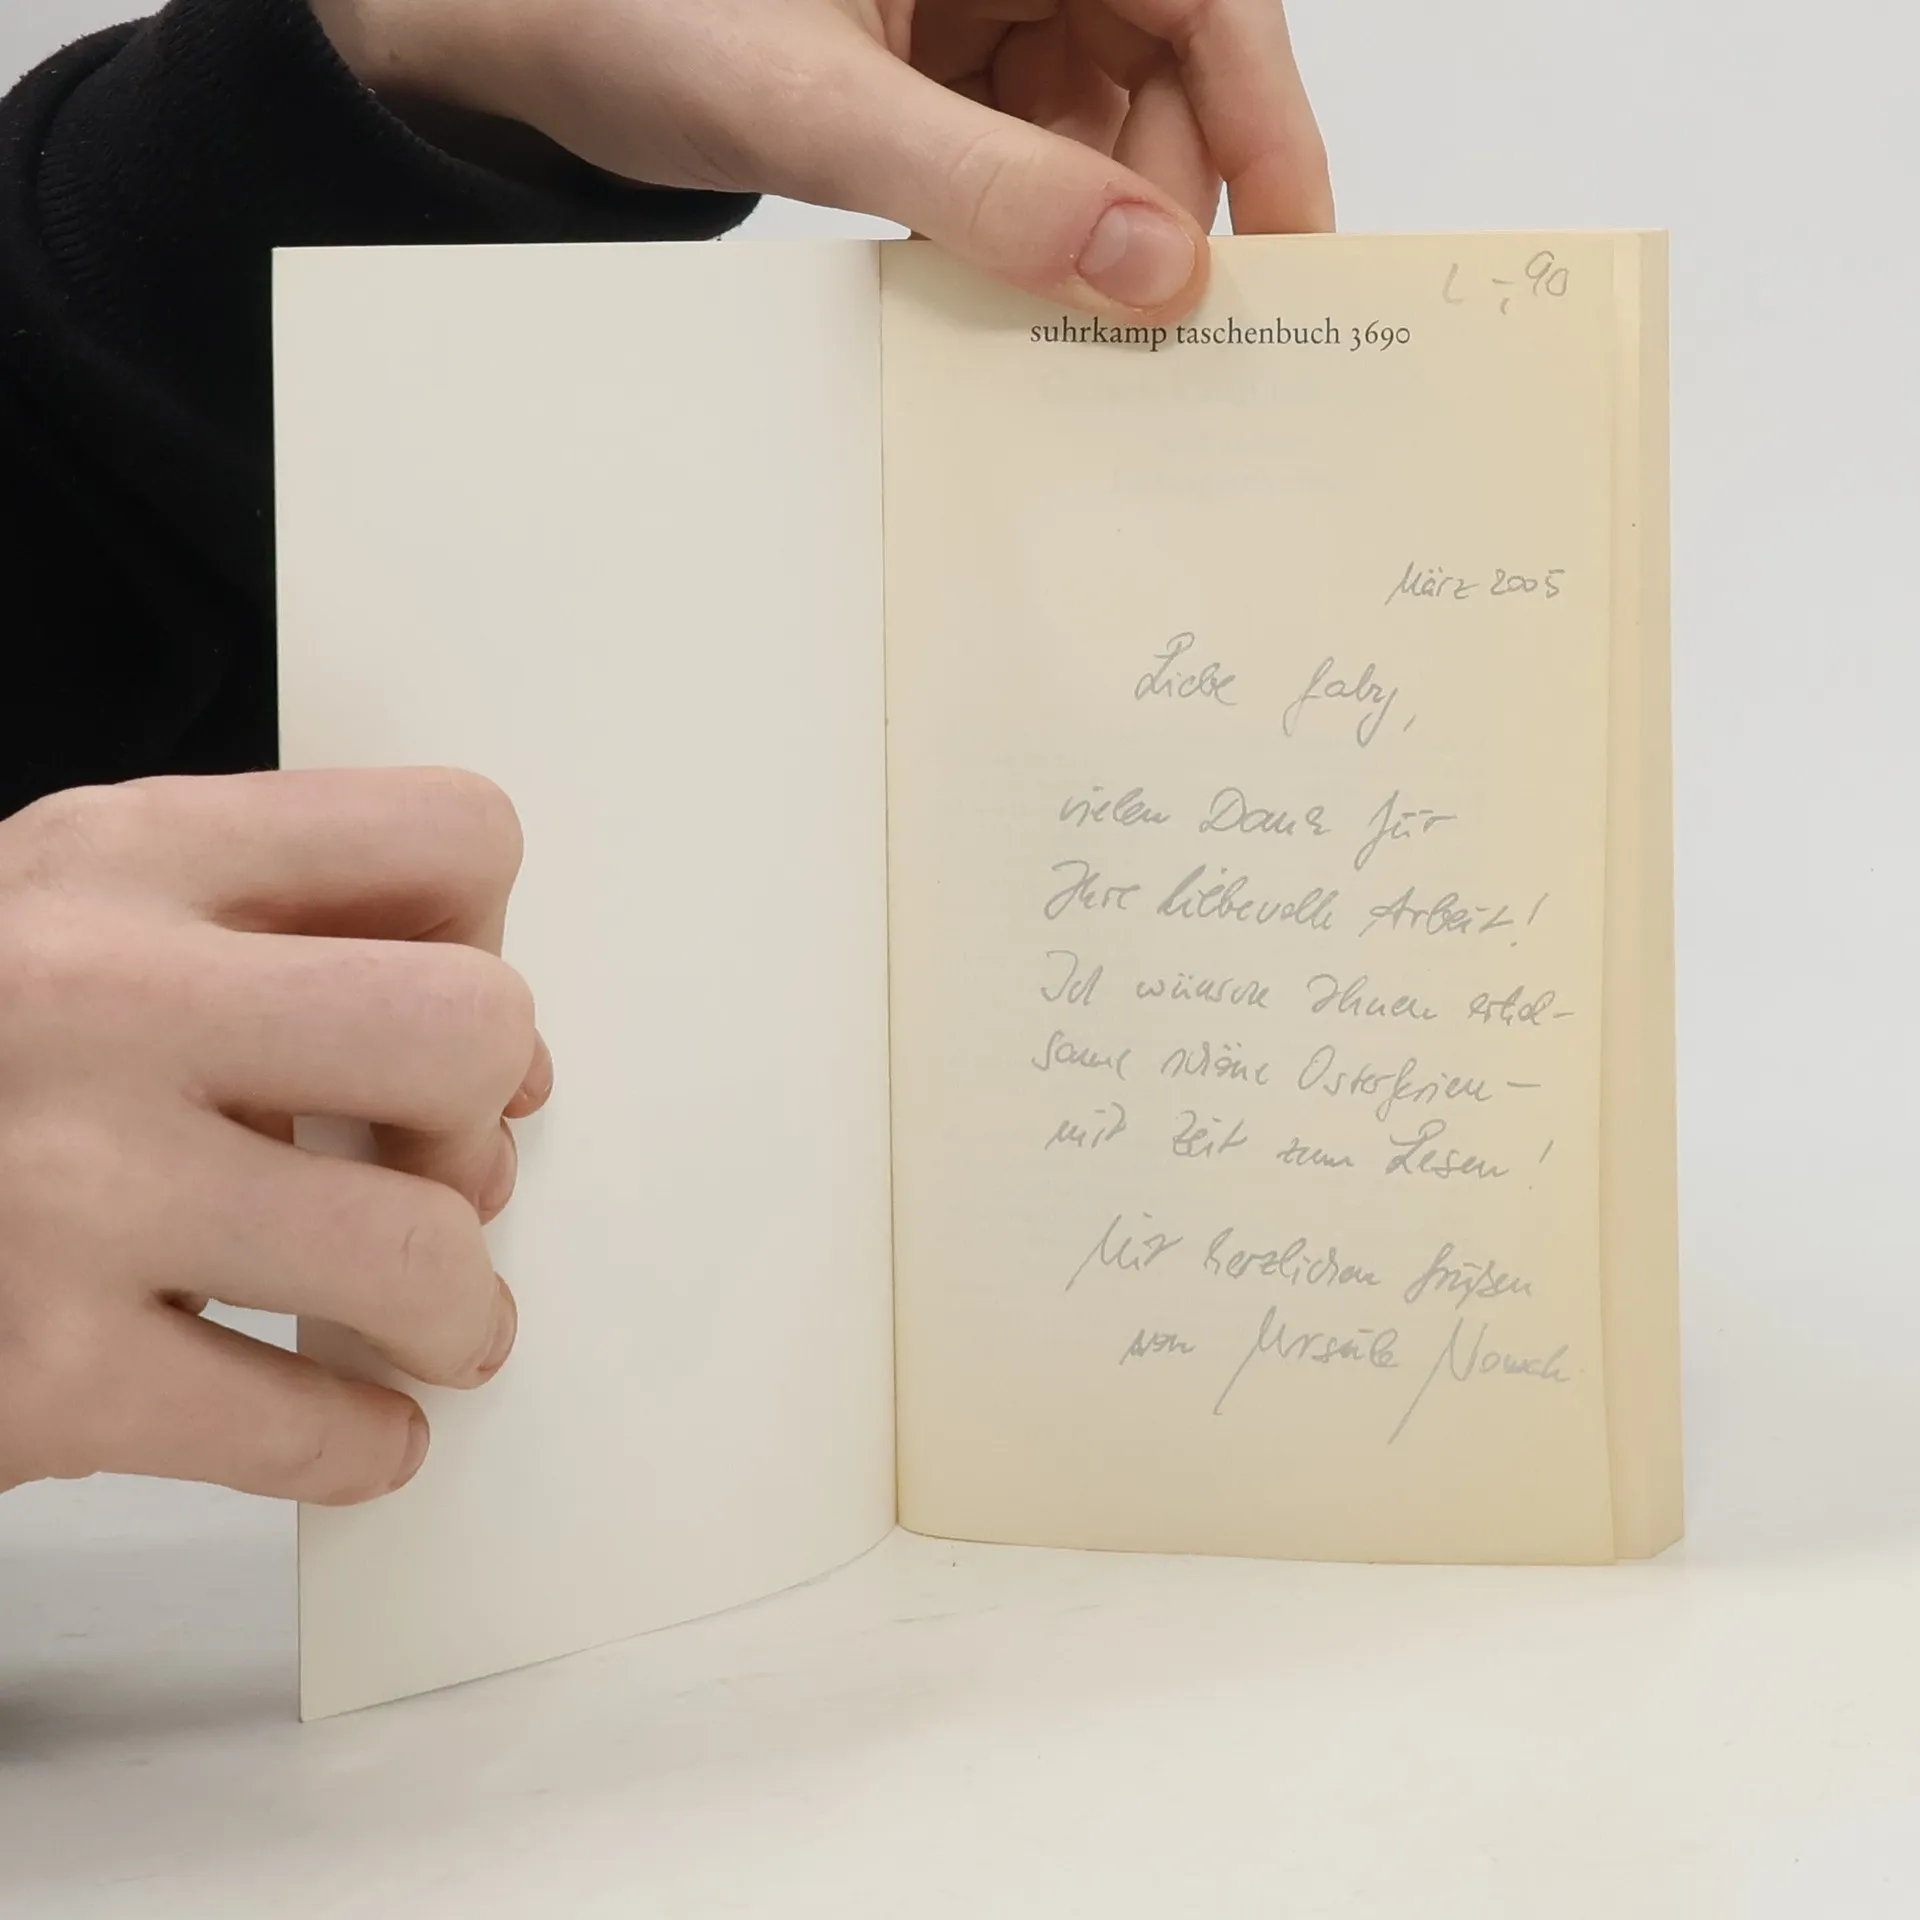 L -,90
suhrkamp taschenbuch 3690
März 2005
Liebe Gaby,
vielen Dank für
Ihre liebevolle Arbeit!
Ich wünsche Ihnen erhol-
same schöne Osterferien –
mit Zeit zum Lesen!
Mit herzlichen Grüßen
von Ursula Nowack